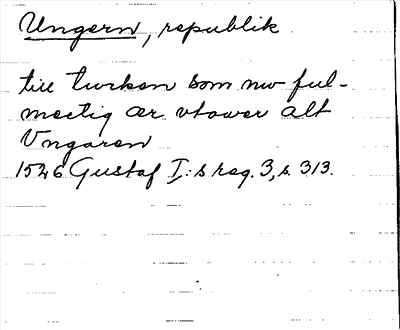 Ungern, republik
till turken som nw ful-
mectig ær vtower alt
Vngaren
1526 Gustaf I:s reg. 3, s. 313.